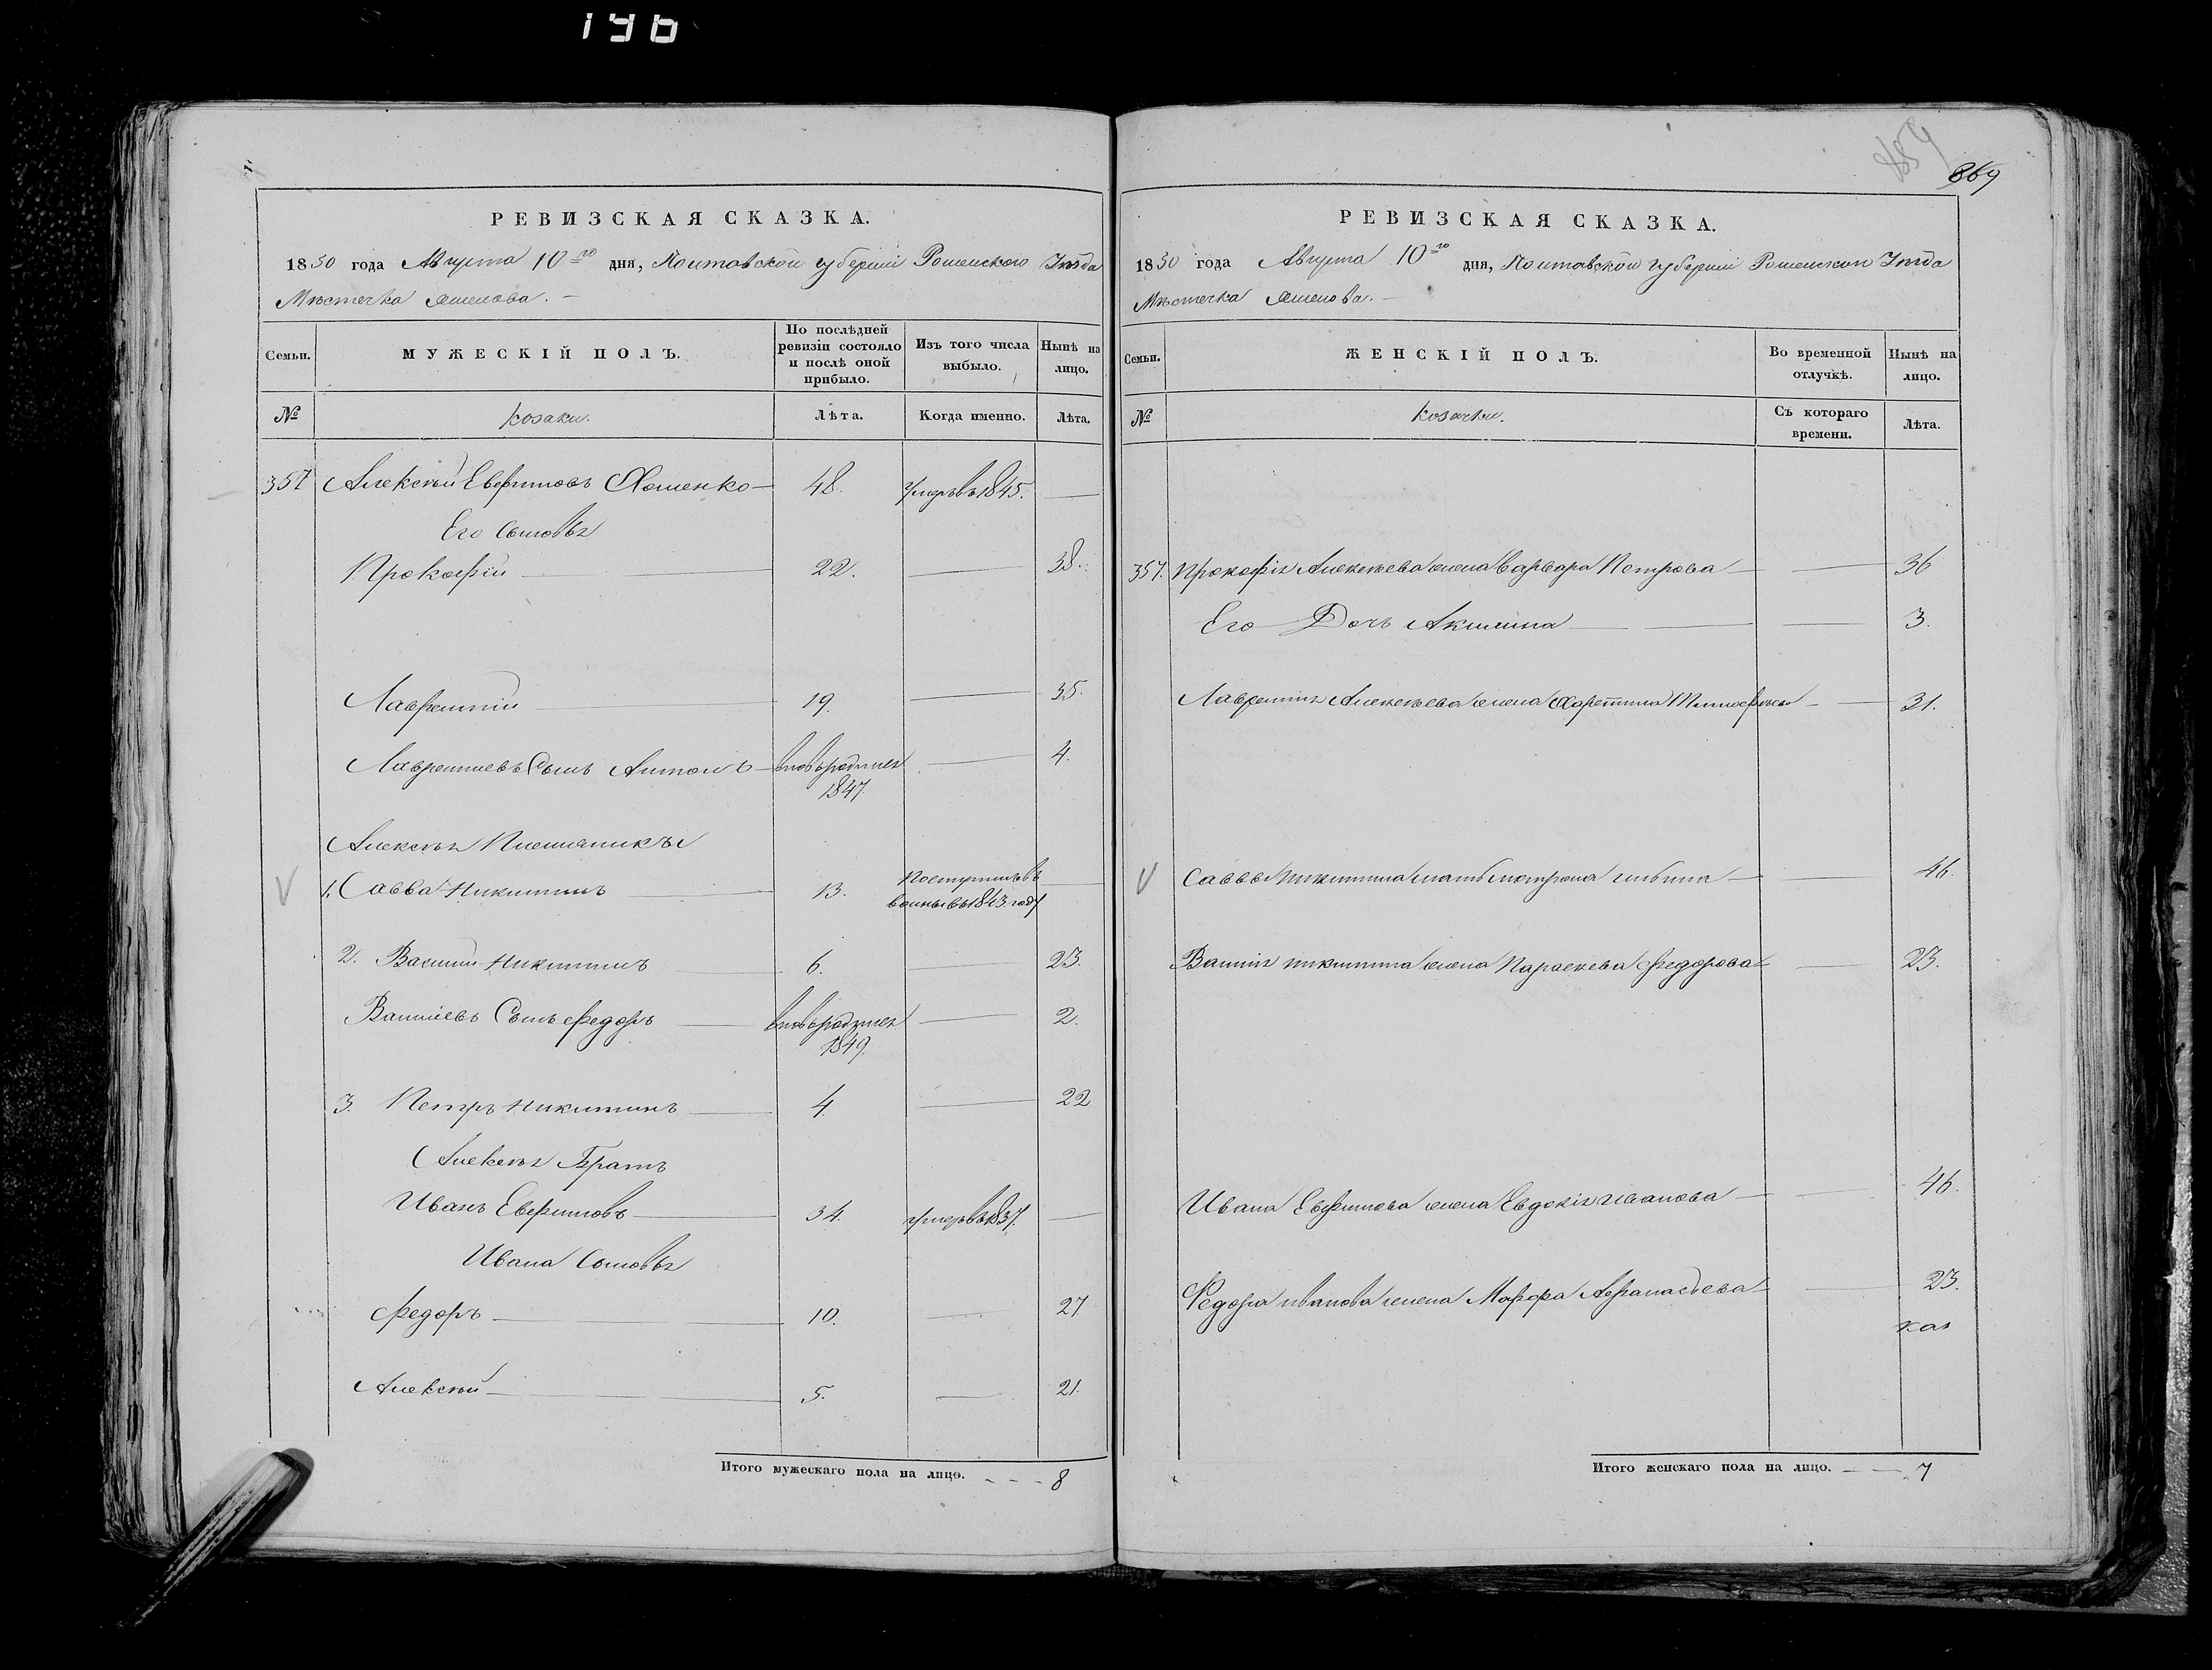 196
859
869
РЕВИЗСКАЯ СКАЗКА.
1850 года Августа 10го дня, Полтавской губерніи Роменского Уѣзда
Мѣстечка
МУЖЕСКІЙ ПОЛЪ.
Семьи.
По послѣдней ревизіи состояло и послѣ оной прибыло.
Изъ того числа выбыло.
Нынѣ на лицо.
№
Козаки.
Лѣта.
Когда именно.
Лѣта.
357 Алексѣй Евфимовъ Хоменко 48. умеръ въ 1845.
Его сыновья
1. Прокофій 22. 38.
Лаврентій 19. 35.
Лаврентіевъ Сынъ Антонъ вновьродился 4.
1847.
Алексѣя Племянники
V 1. Савва Никитинъ 13. Поступилъ въ
воины въ 1843. году
2. Василий Никитинъ 6. 23.
Василіевъ Сынъ Федоръ вновьродился 2.
1849.
3. Петръ Никитинъ 4 22
Алексѣя Братъ
Иванъ Евфимовъ 34. умеръ въ 1837.
Ивана Сыновья
Федоръ 10. 27
Алексѣй 5. 21.
Итого мужескаго пола на лицо. 8
РЕВИЗСКАЯ СКАЗКА.
1850 года Августа 10го дня, Полтавской губерніи Роменского Уѣзда
Мѣстечка
Семьи.
ЖЕНСКІЙ ПОЛЪ.
Во временной отлучкѣ.
Нынѣ на лицо.
№
Козачки.
Съ котораго времени.
Лѣта.
357. Прокофія Алексѣева жена Варвара Петрова 36
Его Дочь Акилина 3.
Лаврентія Алексѣева жена Харитина 31.
V Саввы Никитина мать Матрона 46.
Василія Никитина жена Параскева Федорова 23.
Ивана Евфимова жена Евдокія Иванова 46.
Федора Иванова жена Марфа Афанасьева 23.
Итого женскаго пола на лицо. 7